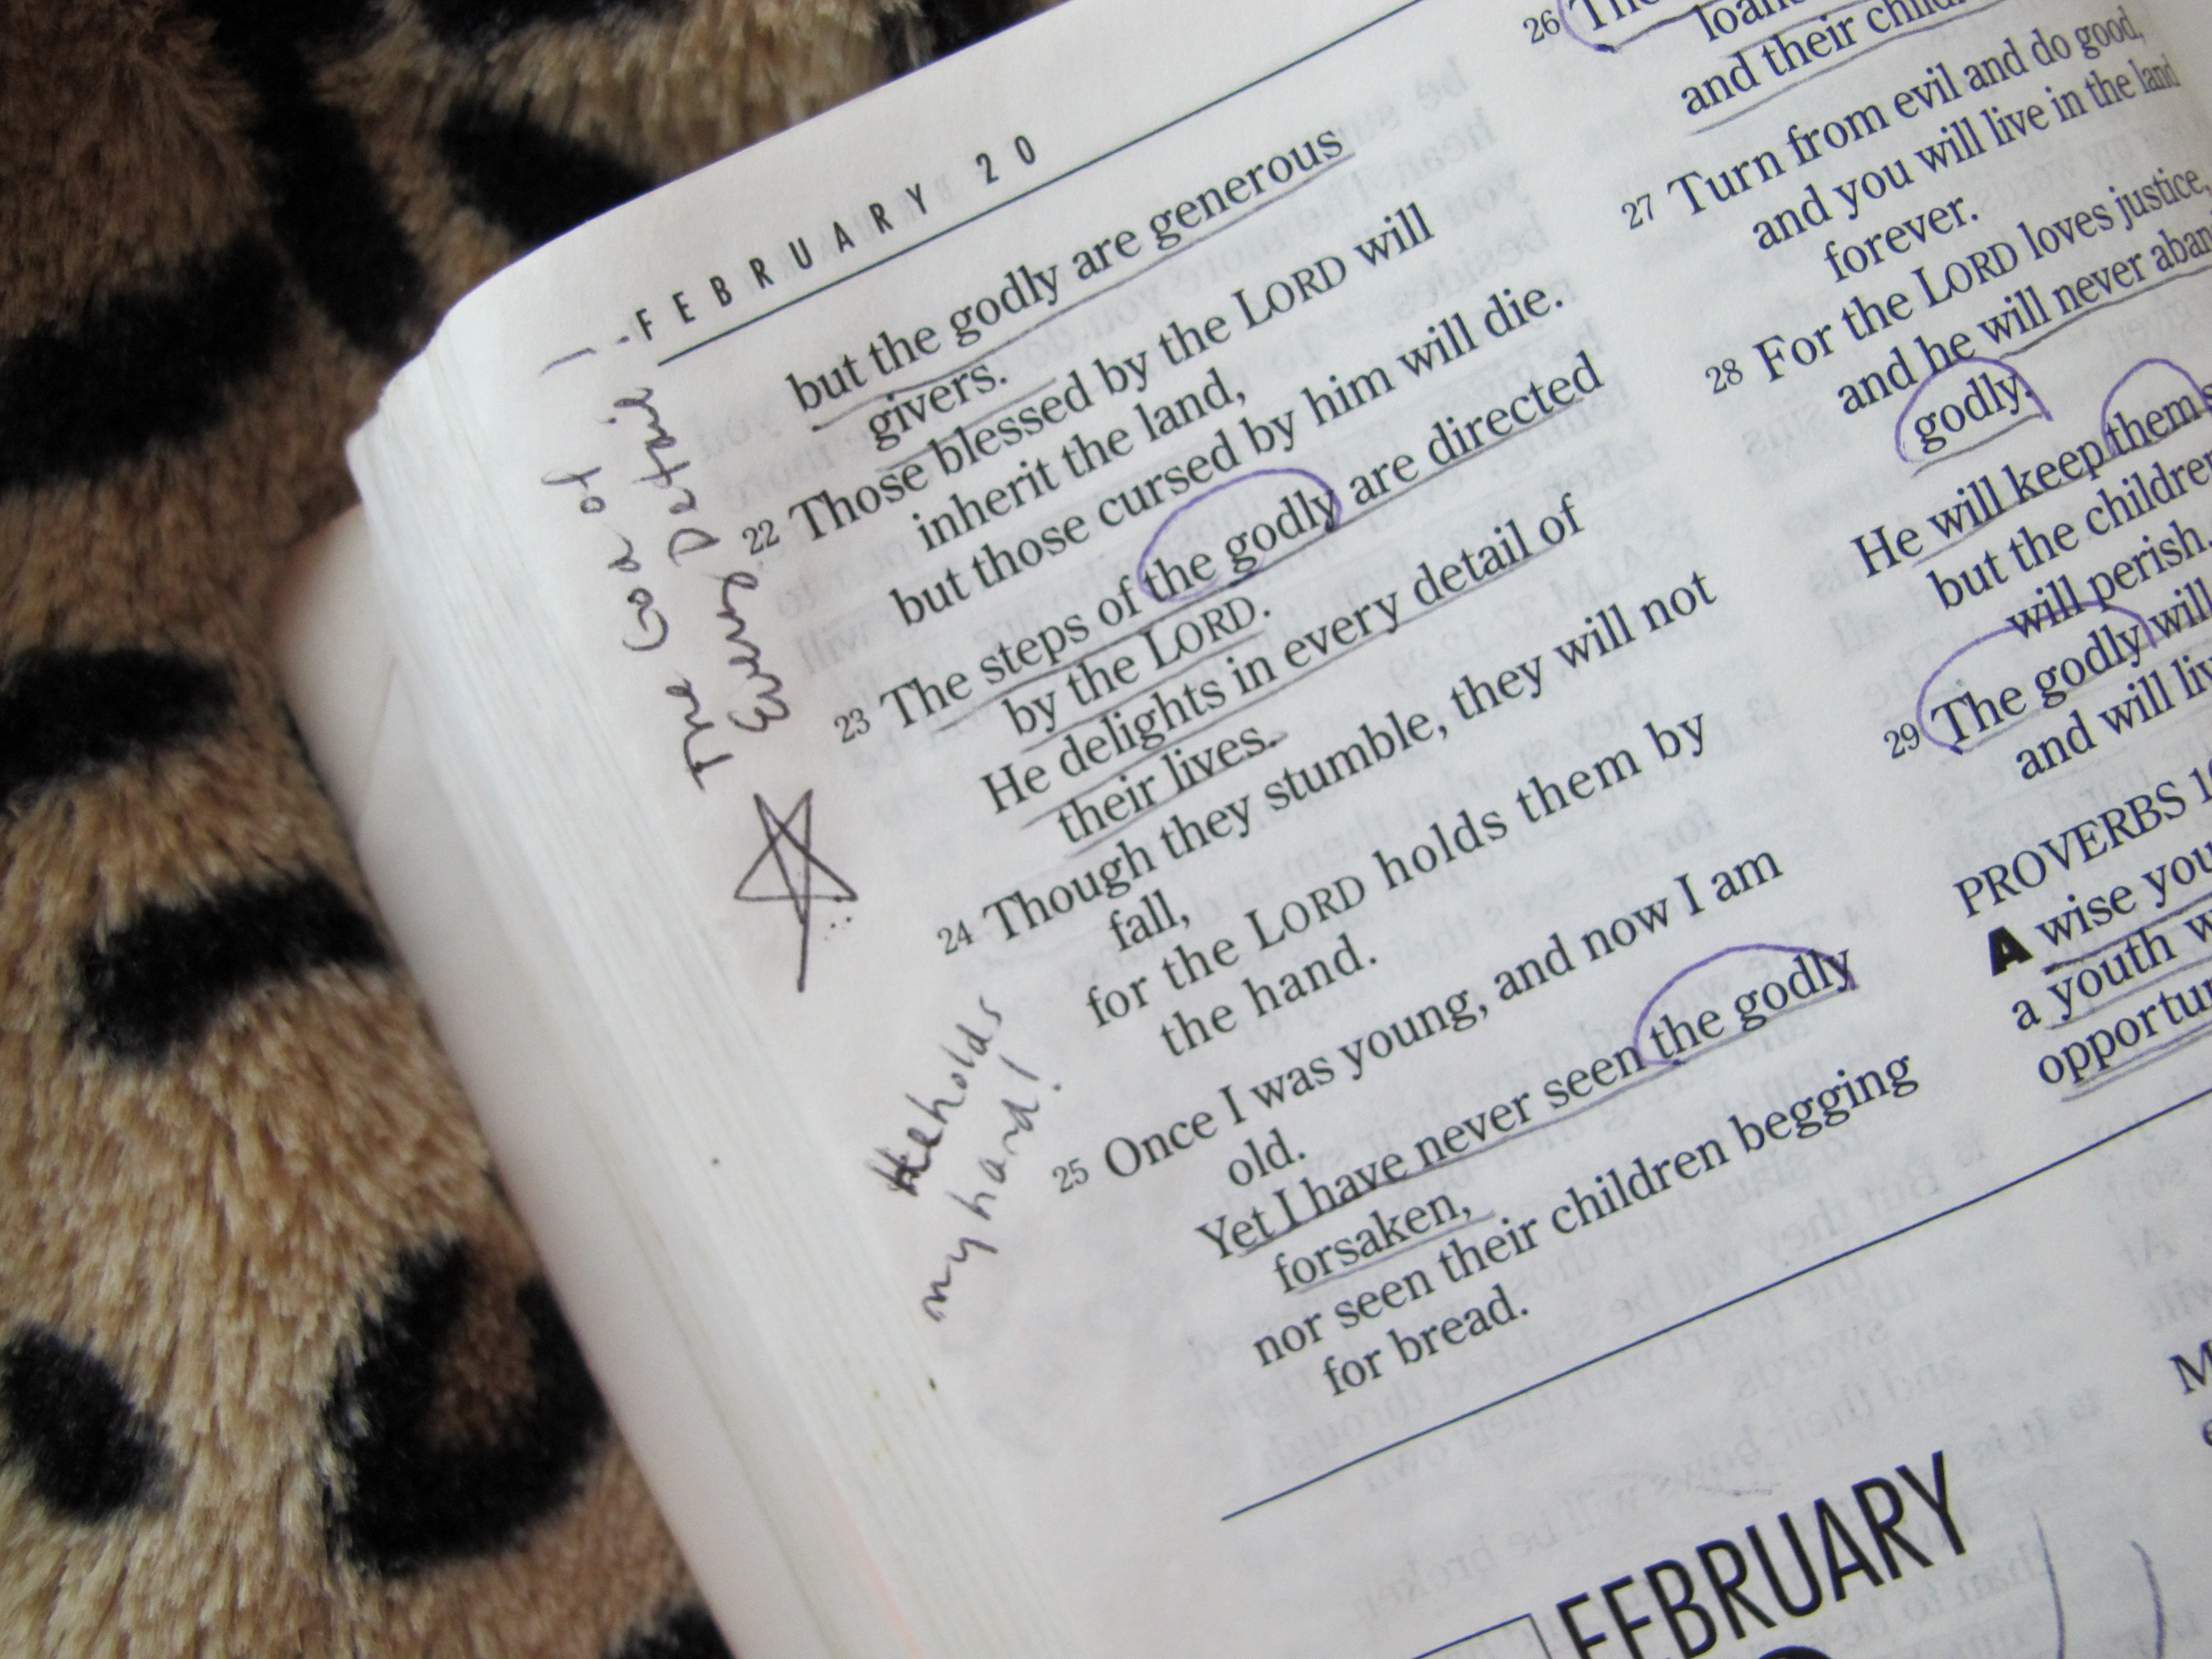 FEBRUARY 20
but the godly are generous
givers.
22 Those blessed by the LORD will
inherit the land,
but those cursed by him will die.
23 The steps of the godly are directed
by the LORD.
He delights in every detail of
their lives.
24 Though they stumble, they will not
fall,
for the LORD holds them by
the hand.
25 Once I was young, and now I am
old.
Yet I have never seen the godly
forsaken,
nor seen their children begging
for bread.
The God of
Every Detail
He holds
my hand!
26 The
loans
and their child
27 Turn from evil and do good,
and you will live in the land
forever.
28 For the LORD loves justice,
and he will never aban
godly.
He will keep them s
but the childre
will perish.
29 The godly will
and will liv
PROVERBS 10
A wise you
a youth w
opportun
FEBRUARY